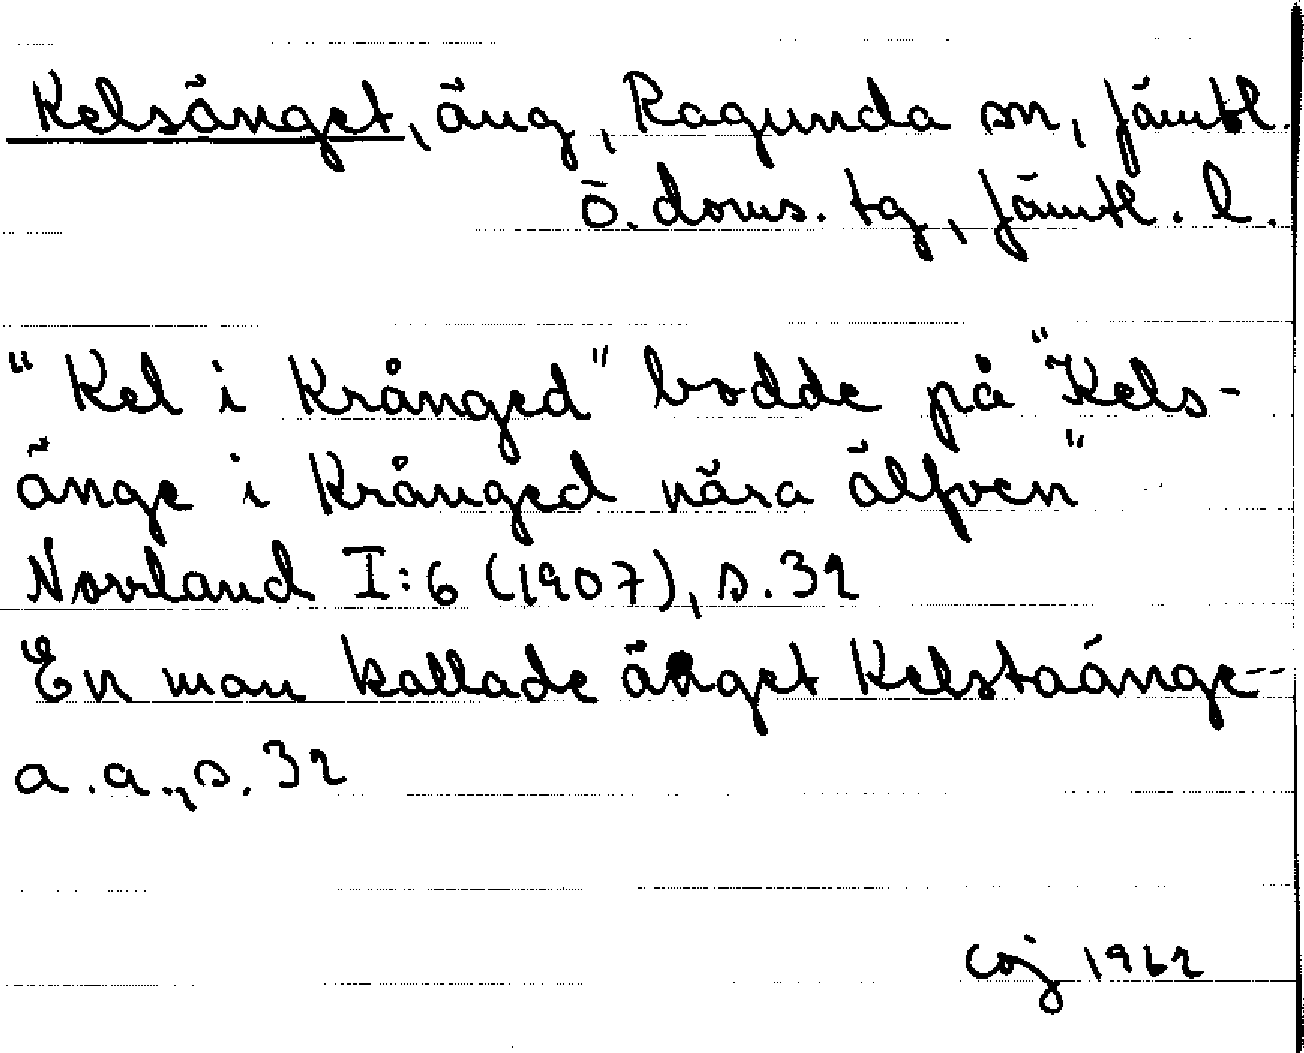 Kelsänget, äng, Ragunda sn, Jämtl.
ö. doms. tg, Jämtl. l.
"Kel i Krånged" bodde på "Kels-
änge i Krånged nära älfven"
Norrland I:6 (1907), s. 32
En man kallade änget Kelstaänge--
a.a., s. 32
COJ 1962